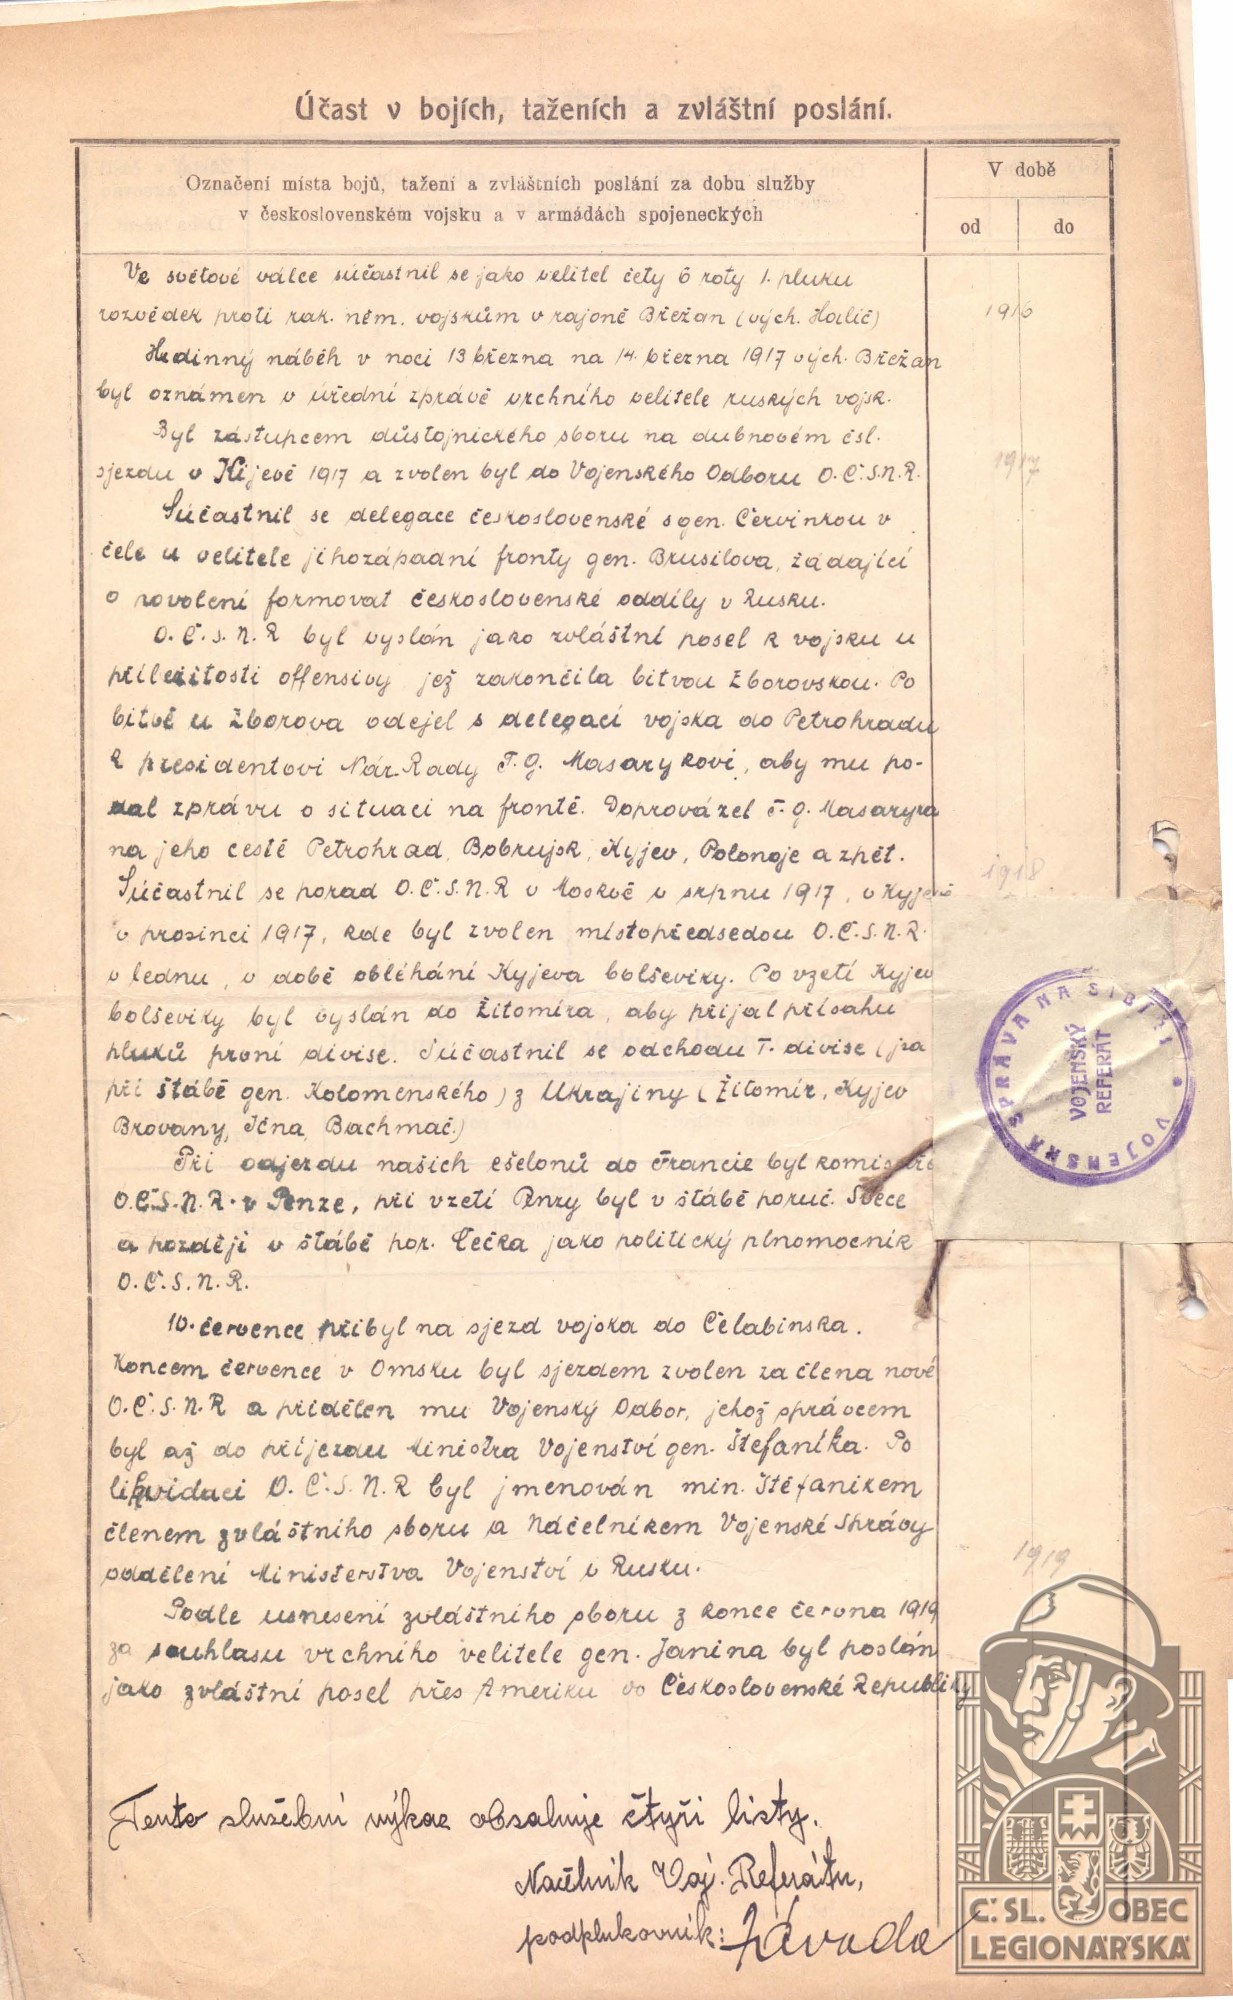 Účast v bojích, taženích a zvláštní poslání.
Označení místa bojů, tažení a zvláštních poslání za dobu služby
v československém vojsku a v armádách spojeneckých
V době
od
do
Ve světové válce súčastnil se jako velitel čety 6 roty 1. pluku
rozvědek proti rak. něm. vojskům v rajoně Břežan (vých. Halič)
1916
Hrdinný náběh v noci 13 března na 14. března 1917 vých. Břežan
byl oznámen v úřední zprávě vrchního velitele ruských vojsk.
Byl zástupcem důstojnického sboru na dubnovém čsl.
sjezdu v Kijevě 1917 a zvolen byl do Vojenského Odboru O.Č.S.N.R.
1917
Súčastnil se delegace československé s gen. Červinkou v
čele u velitele jihozápadní fronty gen. Brusilova, žádající
o povolení formovat československé oddíly v Rusku.
O.Č.S.N.R byl vyslán jako zvláštní posel k vojsku u
příležitosti offensivy jež zakončila bitvou Zborovskou. Po
bitvě u Zborova odejel s delegací vojska do Petrohradu
k presidentovi Nár. Rady T.G. Masarykovi, aby mu po-
dal zprávu o situaci na frontě. Doprovázel T.G. Masaryka
na jeho cestě Petrohrad, Bobrujsk, Kyjev, Polonoje a zpět.
1918
Súčastnil se porad O.Č.S.N.R v Moskvě v srpnu 1917, v Kyjevě
v prosinci 1917, kde byl zvolen místopředsedou O.Č.S.N.R.
v lednu, v době obléhání Kyjeva bolševiky. Po vzetí Kyjev
bolševiky byl vyslán do Žitomíra, aby přijal přísahu
pluků první divise. Súčastnil se odchodu I. divise (ja
při štábě gen. Kolomenského) z Ukrajiny (Žitomír, Kyjev
Brovany, Ična, Bachmač.)
Při odjezdu našich ešelonů do Francie byl komisařem
O.Č.S.N.R. v Penze, při vzetí Penzy byl v štábě poruč. Švece
a později v štábě por. Čečka jako politický plnomocník
O.Č.S.N.R.
VOJENSKÁ SPRÁVA NA SIBIŘI
VOJENSKÝ
REFERÁT
10. července přibyl na sjezd vojska do Čelabinska.
Koncem července v Omsku byl sjezdem zvolen za člena nové
O.Č.S.N.R a přidělen mu Vojenský Odbor, jehož správcem
byl až do příjezdu Ministra Vojenství gen. Štefaníka. Po
likvidaci O.Č.S.N.R byl jmenován min. Štefanikem
členem zvláštního sboru a Náčelníkem Vojenské Správy
oddělení Ministerstva Vojenství v Rusku.
1919
Podle usnesení zvláštního sboru z konce června 1919
za souhlasu vrchního velitele gen. Janina byl poslán
jako zvláštní posel přes Ameriku do Československé Republiky
Tento služební výkaz obsahuje čtyři listy.
Načelník Voj. Referátu,
podplukovník: Závada
Č.SL. OBEC
LEGIONÁŘSKÁ